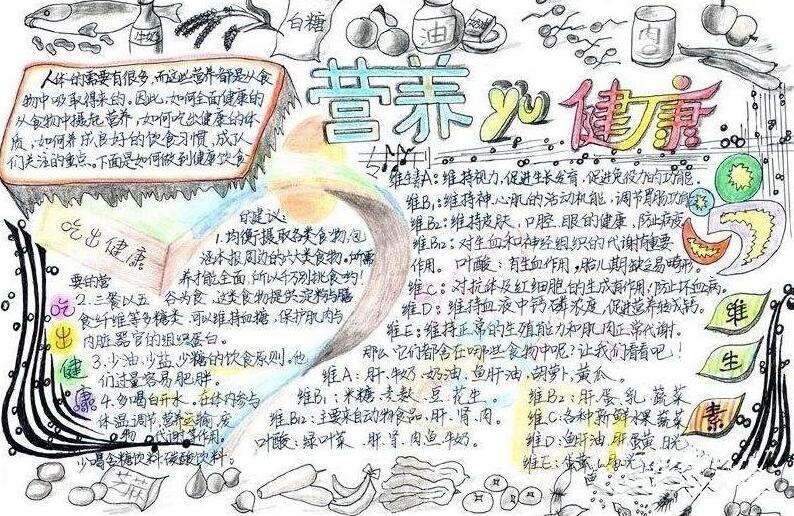 白糖
牛奶
油
肉
营养yu健康
人体的需要有很多,而这些营养都是从食
物中吸取得来的。因此,如何全面健康的
从食物中摄起营养,如何吃出健康的体
质,如何养成良好的饮食习惯,成了人
们关注的重点。下面是如何做到健康饮食
的建议:
吃出健康
1.均衡摄取各类食物,包
括本报周边的六大类食物。所需
要的营养才能全面,所以千万别挑食哟!
2.三餐以五谷为食,这类食物提供淀粉与膳
食纤维等多糖类,可以维持血糖,保护肌肉与
内脏器官的组织蛋白。
3.少油,少盐,少糖的饮食原则。他
们过量容易肥胖。
4.多喝白开水。在体内参与
体温调节,营养运输,废
物代谢等作用。
少喝含糖饮料,碳酸饮料。
吃
出
健
康
维生素A:维持视力,促进生长发育,促进免疫力的功能。
维B₁:维持神、心肌的活动机能,调节胃肠功能
维B₂:维持皮肤,口腔,眼的健康,防止
维B₁₂:对生血和神经组织的代谢持重要
作用。叶酸:有生血作用,胎儿期缺乏易畸形。
维C:对抗体及红细胞的生成有作用,防止坏血病。
维D:维持血液中钙磷浓度,促进营养
维E:维持正常的生殖能力和肌肉正常代谢。
那么,它们都含在哪些食物中呢?让我们看看吧!
维A:肝、牛奶、奶油、鱼肝油、胡萝卜、黄瓜。
维B₁:米糠、麦麸、豆、花生。
维B₂:肝、蛋、乳、蔬菜
维B₁₂:主要来自动物食品,肝、肾、肉。
维C:各种新鲜水果、蔬菜
叶酸:绿叶菜、肝、肾、肉、鱼、牛奶。
维D:鱼肝油、肝、蛋黄、日光
维E:
维
生
素
芝麻